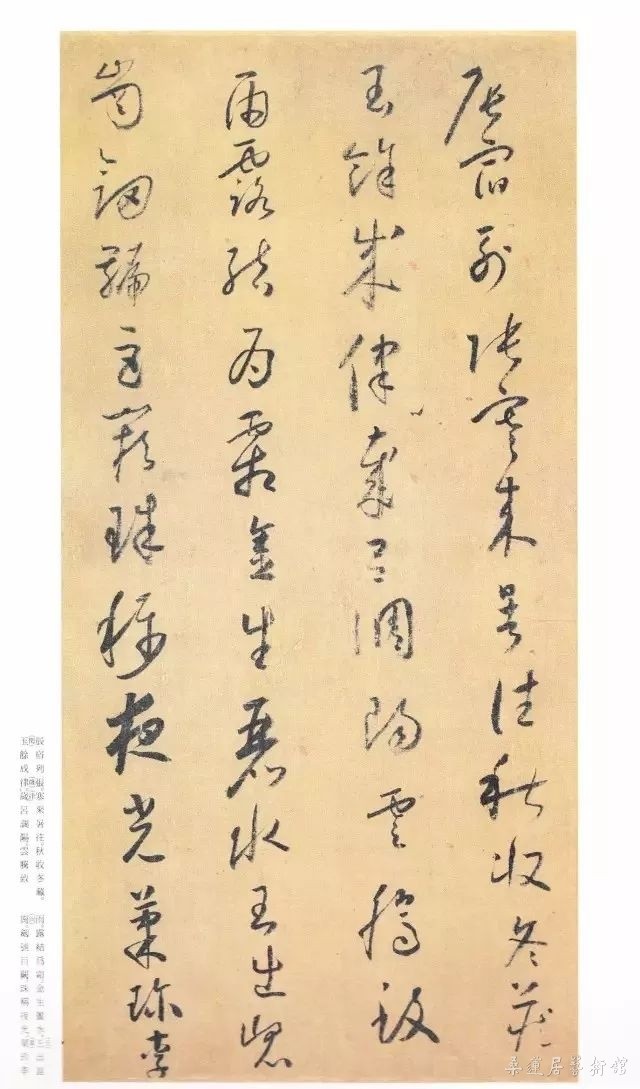 辰宿列張寒來暑往秋收冬藏
玉餘成律歲呂調陽雲騰致
雨露結為霜金生麗水玉出崑
崗劍號巨闕珠稱夜光菓珍李
辰宿列張寒來暑往秋收冬藏。
玉餘成律歲呂調陽雲騰致
雨露結爲霜金生麗水玉出崑
崗劍號巨闕珠稱夜光菓珍李
桑蓮居藝術館